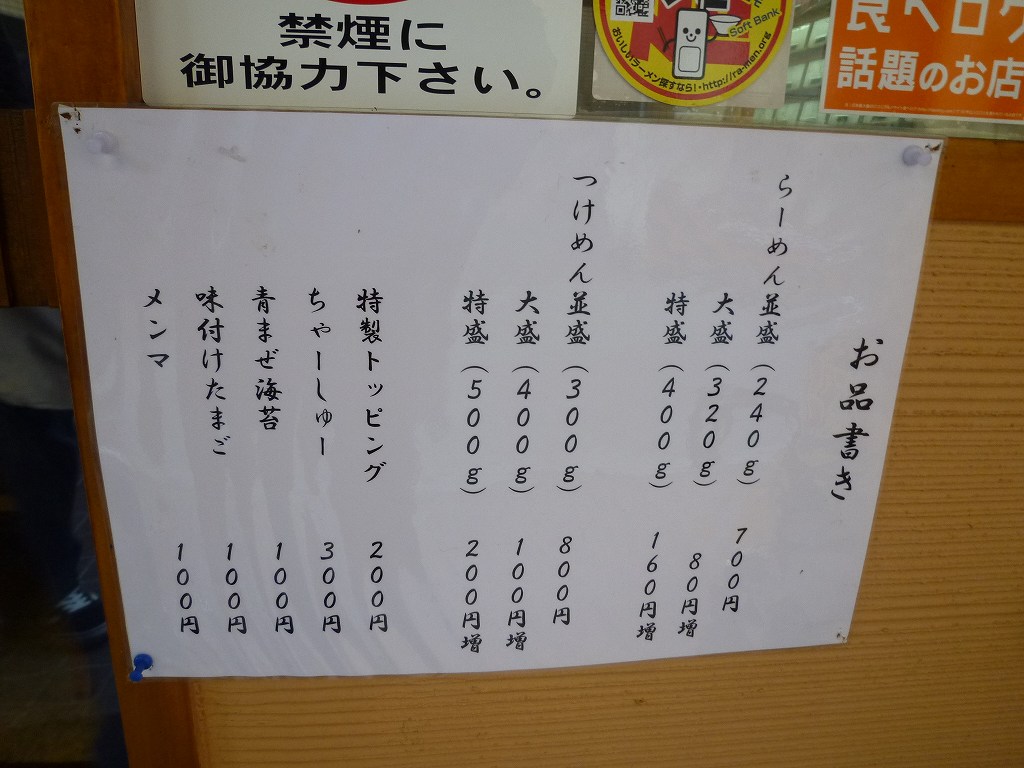 禁煙に
御協力下さい。
Soft Bank
おいしいラーメン探すなら!・http://ra-men.org
食べログ
話題のお店
お品書き
らーめん並盛(240g) 700円
大盛(320g) 80円増
特盛(400g) 160円増
つけめん並盛(300g) 800円
大盛(400g) 100円増
特盛(500g) 200円増
特製トッピング 200円
ちゃーしゅー 300円
青まぜ海苔 100円
味付けたまご 100円
メンマ 100円